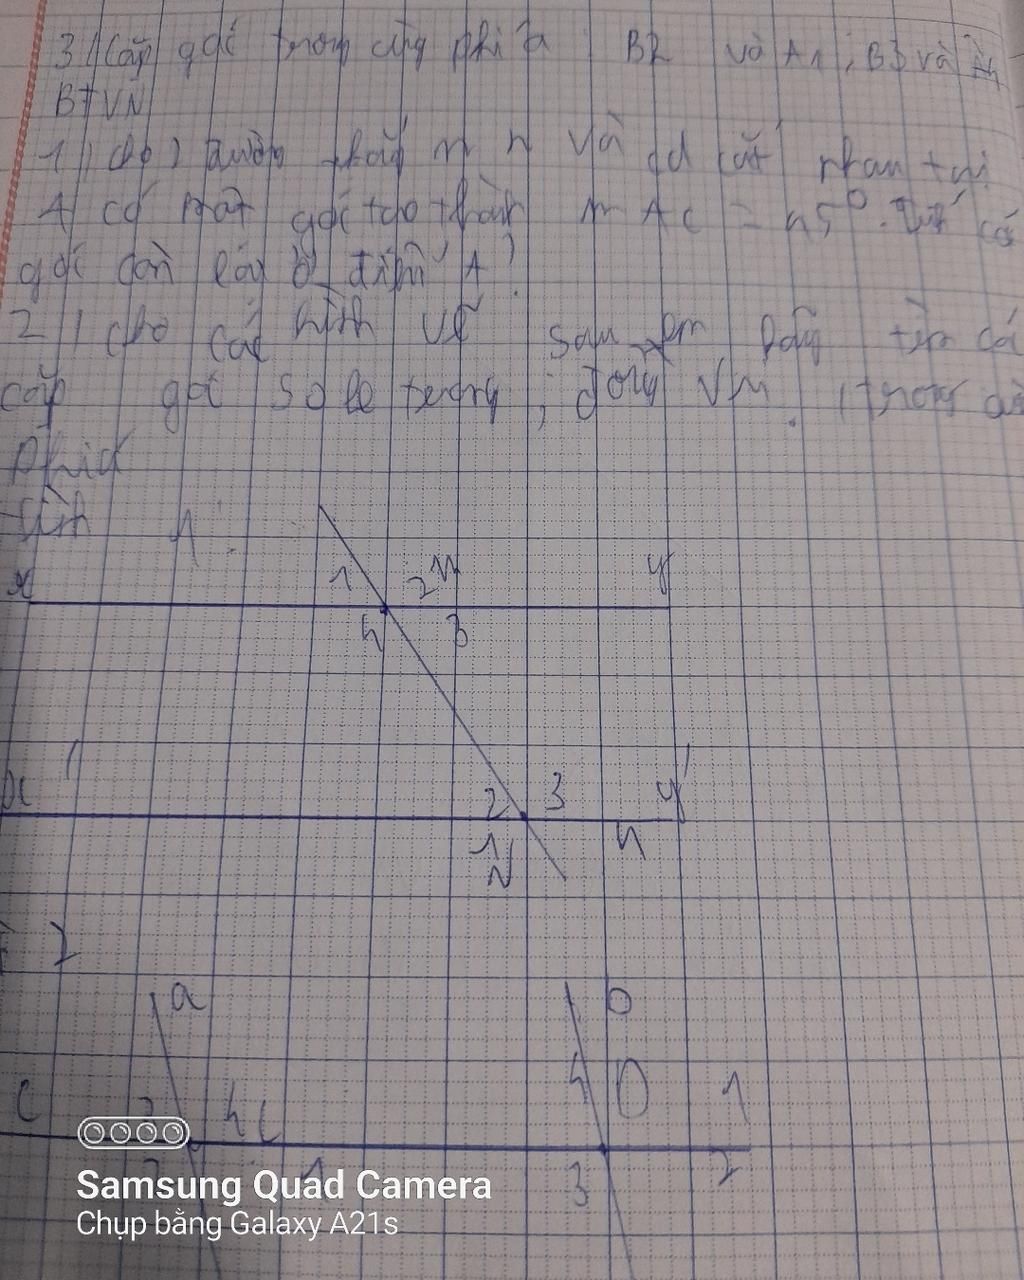 3) Cặp góc trong cùng phía B2 và A1; B3 và A4
BTVN
1) cho 2 đường thẳng m n và cắt nhau tại
A có một góc tạo thành m A c = 45°. Tính các
góc còn lại ở điểm A
2) cho các hình vẽ sau em hãy tìm cá
cặp góc so le trong, đồng vị, trong cù
phía
x 1 2 M y
4 3
x' 2 3 y'
1 N 4
2
a b
4 D 1
c 4 C
1 3 2
Samsung Quad Camera
Chụp bằng Galaxy A21s